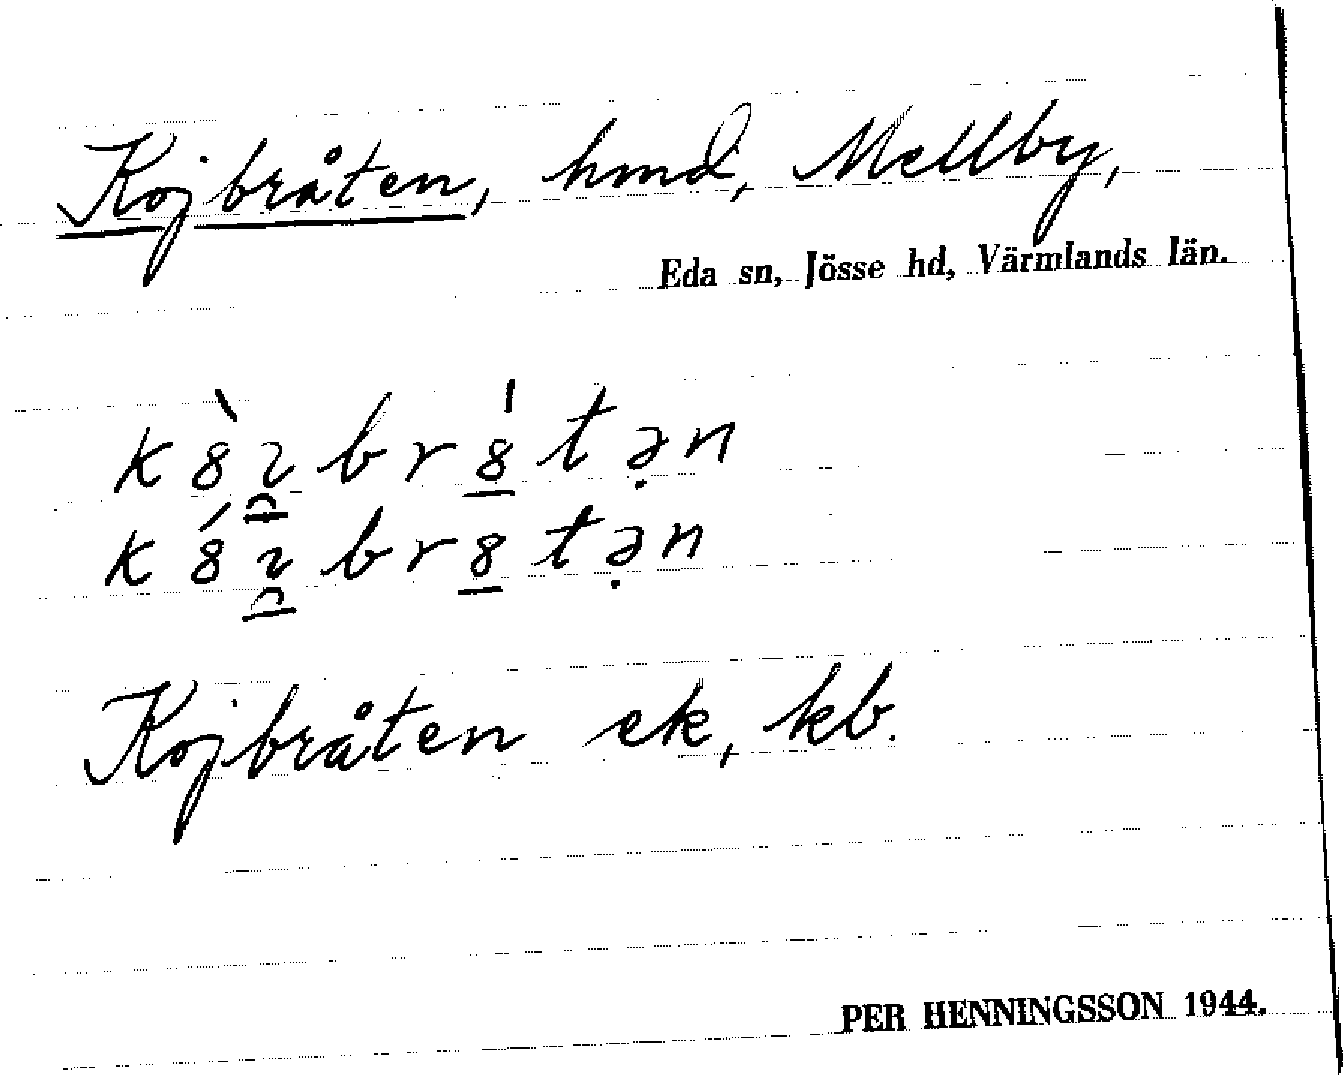 Kojbråten, hmd, Mellby,
Eda sn, Jösse hd, Värmlands län.
k8̀ɪ̯br8̲́tə̣n
k8́ɪ̯br8̲tə̣n
Kojbråten ek, kb.
PER HENNINGSSON 1944.